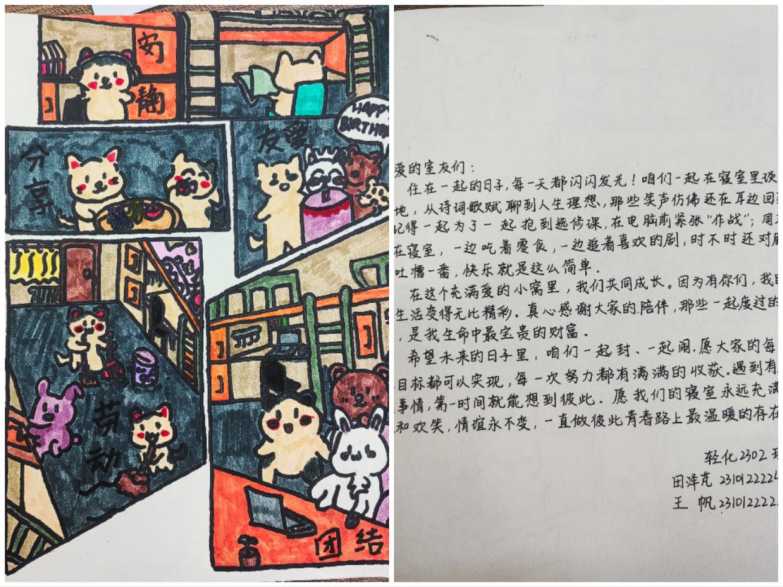 安
静
分
享
友爱
HAPPY
劳
动
团结
爱的室友们：
住在一起的日子,每一天都闪闪发光！咱们一起在寝室里谈
地，从诗词歌赋聊到人生理想,那些笑声仿佛还在耳边回
记得一起为了一起抢到选修课,在电脑前紧张“作战”；周
在寝室，一边吃着零食,一边追着喜欢的剧,时不时还对
吐槽一番，快乐就是这么简单.
在这个充满爱的小窝里，我们共同成长。因为有你们，我
生活变得无比精彩。真心感谢大家的陪伴,那些一起度过的
，是我生命中最宝贵的财富.
希望未来的日子里，咱们一起封、一起闹.愿大家的每
目标都可以实现,每一次努力都有满满的收获.遇到有
事情,第一时间就能想到彼此.愿我们的寝室永远充满
和欢笑,情谊永不变,一直做彼此青春路上最温暖的存在
轻化2302
田泽芃
王 帆